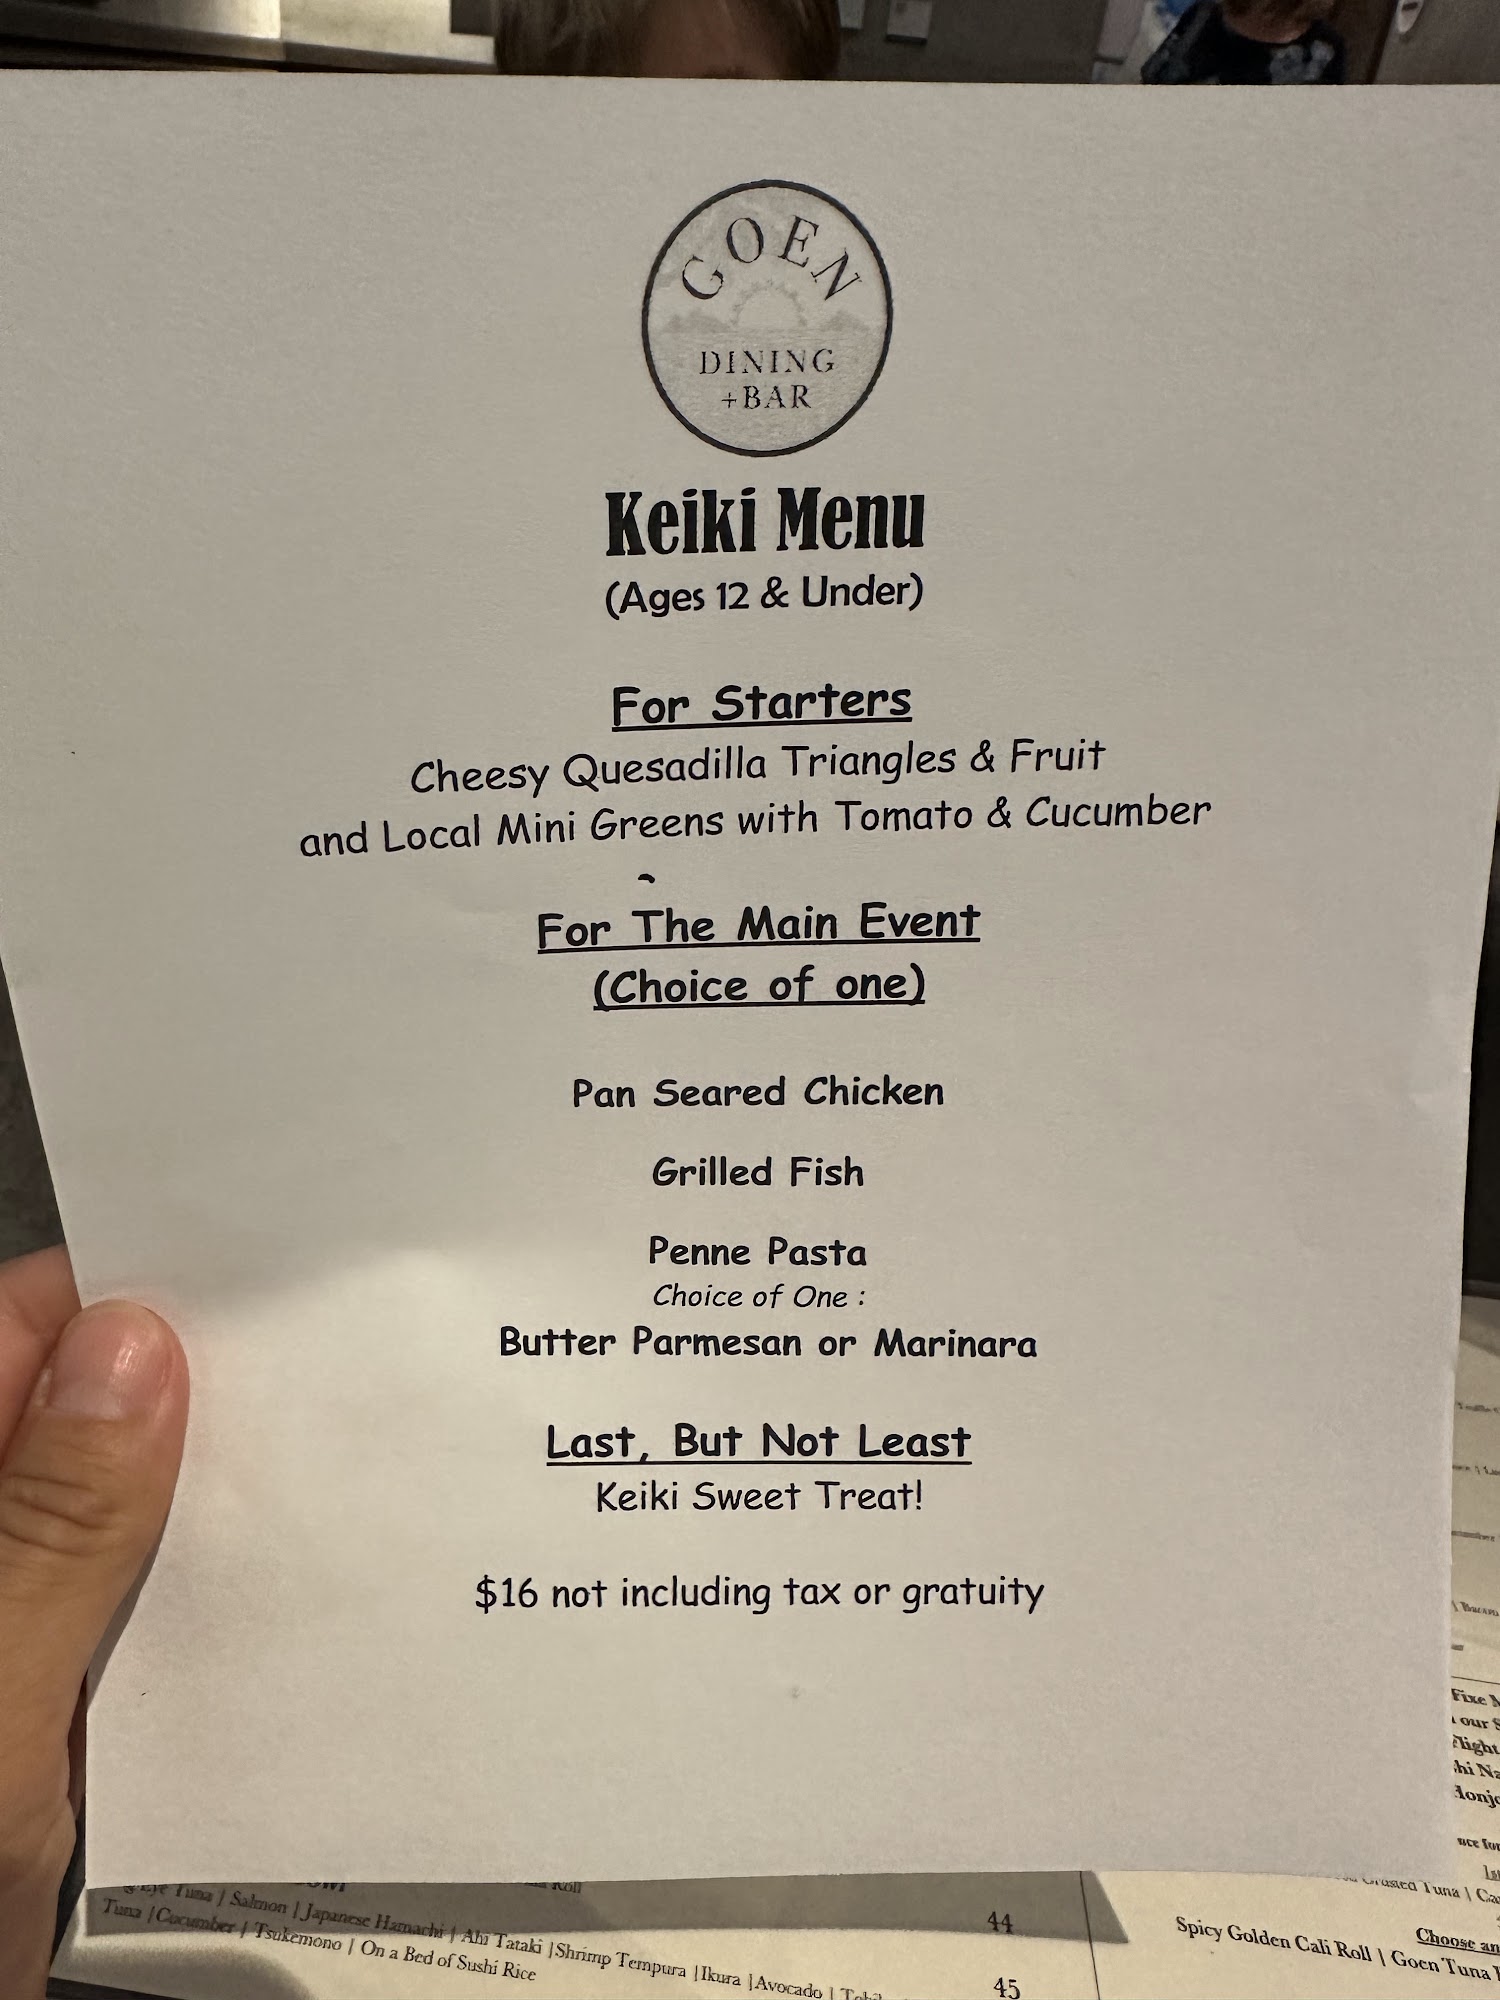 GOEN
DINING
+BAR
Keiki Menu
(Ages 12 & Under)
For Starters
Cheesy Quesadilla Triangles & Fruit
and Local Mini Greens with Tomato & Cucumber
For The Main Event
(Choice of one)
Pan Seared Chicken
Grilled Fish
Penne Pasta
Choice of One :
Butter Parmesan or Marinara
Last, But Not Least
Keiki Sweet Treat!
$16 not including tax or gratuity
Roll
Eye Tuna | Salmon | Japanese Hamachi | Ahi Tataki | Shrimp Tempura | Ikura | Avocado |
44
Tuna | Cucumber | Tsukemono | On a Bed of Sushi Rice
45
Fixe
our
Flight
Crusted Tuna |
Choose an
Spicy Golden Cali Roll | Goen Tuna